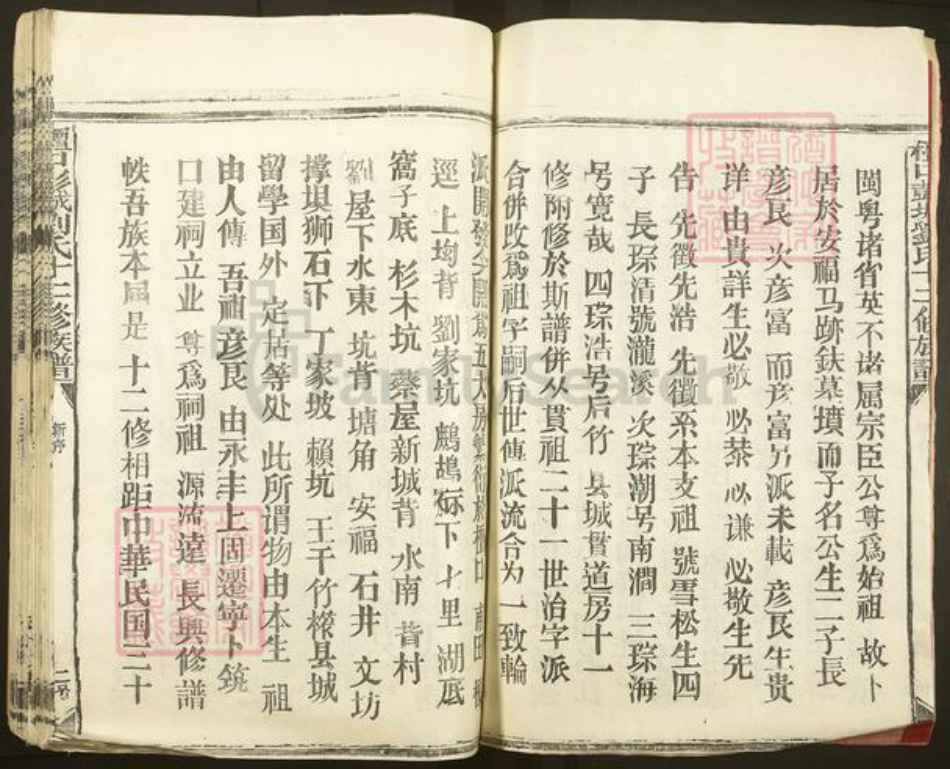 閩粤诸省英不诸属宗臣公尊爲始祖 故卜
居於安福马跡鈇墓墳而子名公生二子長
彦艮 次彦富 而彦富另派未載 彦艮生貴
详 由貴詳生必敬 必恭 必谦 必敬生先
告 先徵先浩 先徵系本支祖 號雪松生四
子 長琮清號瀧溪 次琮潮另南澗 三琮海
另寛哉 四琮浩另后竹 县城貫道房十一
修附修於斯譜併从貫祖二十一世治字派
合併改爲祖字嗣后世傳派流合为一致輪
派開發 五大房 南田
逕 上坳背 劉家坑 鷓鴣石下 七里 湖底
窩子底 杉木坑 蔡屋新城背 水南 背村
劉屋下水東 坑背 塘角 安福 石井 文坊
撑垻狮石下 丁家坡 賴坑 王干竹 县城
留學国外 定括等处 此所谓物由本生 祖
由人傳 吾祖彦艮 由永丰上固遷寧卜筑
口建祠立业 尊爲祠祖 源流遠 長興修譜
帙吾族本届是 十二修相距中華民国三十
劉氏十二修族譜
氏十二修族譜
新序
FamilySearch